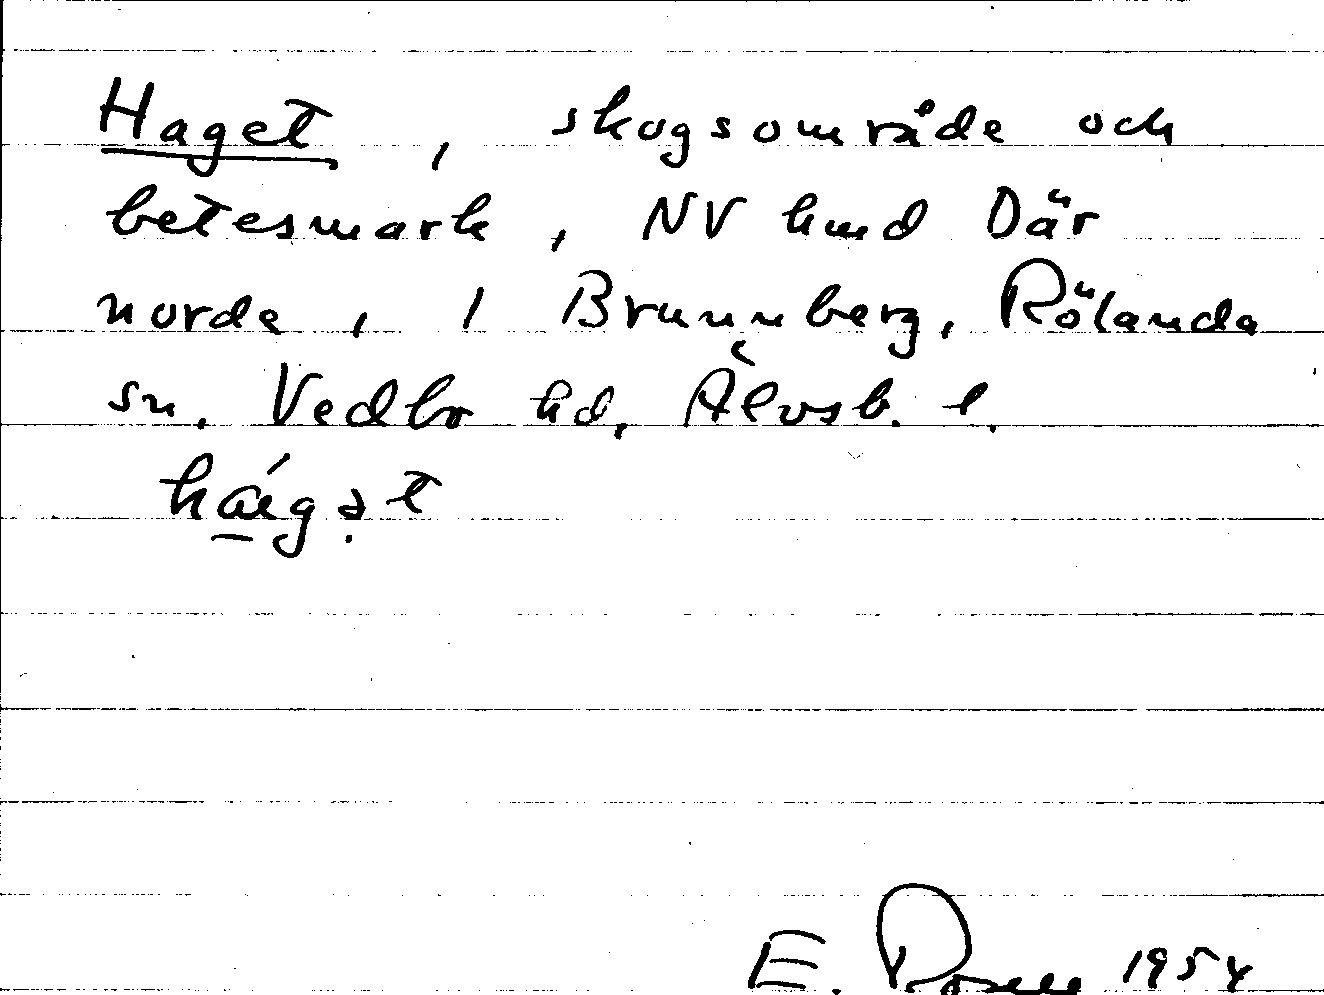 Haget, skogsområde och
betesmark, NV kmd Där
norde, 1 Brunnberg, Rölanda
sn. Vedbo hd, Älvsb. l.
há̱gə̣t
E. 1954